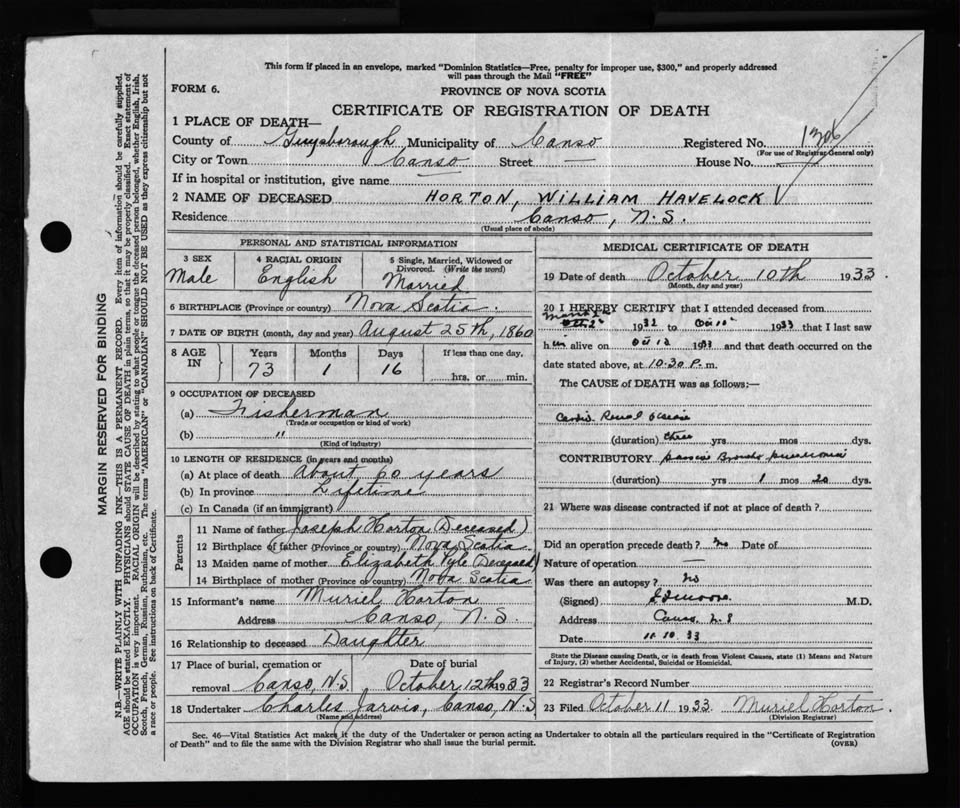 This form if placed in an envelope, marked "Dominion Statistics—Free, penalty for improper use, $300," and properly addressed
will pass through the Mail "FREE"
FORM 6.
PROVINCE OF NOVA SCOTIA
CERTIFICATE OF REGISTRATION OF DEATH
1 PLACE OF DEATH—
County of Guysborough Municipality of Canso Registered No. 1306
(For use of Registrar General only)
City or Town Canso Street — House No.
If in hospital or institution, give name —
2 NAME OF DECEASED HORTON, WILLIAM HAVELOCK
Residence Canso, N.S.
(Usual place of abode)
PERSONAL AND STATISTICAL INFORMATION
3 SEX
Male
4 RACIAL ORIGIN
English
5 Single, Married, Widowed or
Divorced. (Write the word)
Married
6 BIRTHPLACE (Province or country) Nova Scotia
7 DATE OF BIRTH (month, day and year) August 25th, 1860
8 AGE IN
Years Months Days If less than one day,
73 1 16 hrs. or min.
9 OCCUPATION OF DECEASED
(a) Fisherman
(Trade or occupation or kind of work)
(b) "
(Kind of industry)
10 LENGTH OF RESIDENCE (in years and months)
(a) At place of death About 60 years
(b) In province Lifetime
(c) In Canada (if an immigrant)
Parents
11 Name of father Joseph Horton (Deceased)
12 Birthplace of father (Province or country) Nova Scotia
13 Maiden name of mother Elizabeth Pyle (Deceased)
14 Birthplace of mother (Province or country) Nova Scotia
15 Informant's name Muriel Horton
Address Canso, N.S.
16 Relationship to deceased Daughter
17 Place of burial, cremation or Date of burial
removal Canso, N.S. October 12th 1933
18 Undertaker Charles Jarvis, Canso, N.S
(Name and address)
MEDICAL CERTIFICATE OF DEATH
19 Date of death October 10th 1933.
(Month, day and year)
20 I HEREBY CERTIFY that I attended deceased from
1932 to Oct 10 1933 that I last saw
him alive on Oct 10 1933 and that death occurred on the
date stated above, at 10.30 P. m.
The CAUSE of DEATH was as follows:
Cardio Renal disease
(duration) three yrs mos dys.
CONTRIBUTORY Broncho pneumonia
(duration) yrs 1 mos 20 dys.
21 Where was disease contracted if not at place of death?
Did an operation precede death? no Date of
Nature of operation —
Was there an autopsy? no
(Signed) Moore M.D.
Address Canso N.S
Date 11.10.33
State the Disease causing Death, or in death from Violent Causes, state (1) Means and Nature
of Injury, (2) whether Accidental, Suicidal or Homicidal.
22 Registrar's Record Number
23 Filed October 11 1933. Muriel Horton.
(Division Registrar)
Sec. 46—Vital Statistics Act makes it the duty of the Undertaker or person acting as Undertaker to obtain all the particulars required in the "Certificate of Registration
of Death" and to file the same with the Division Registrar who shall issue the burial permit. (OVER)
MARGIN RESERVED FOR BINDING
N.B.—WRITE PLAINLY WITH UNFADING INK—THIS IS A PERMANENT RECORD. Every item of information should be carefully supplied.
AGE should be stated EXACTLY. PHYSICIANS should STATE CAUSE OF DEATH in plain terms, so that it may be properly classified. Exact statement of
OCCUPATION is very important. RACIAL ORIGIN will be described by stating to what people or tongue the deceased person belonged, whether English, Irish,
Scotch, French, German, Russian, Ruthenian, etc. The terms "AMERICAN" or "CANADIAN" SHOULD NOT BE USED as they express citizenship but not
a race or people. See instructions on back of Certificate.